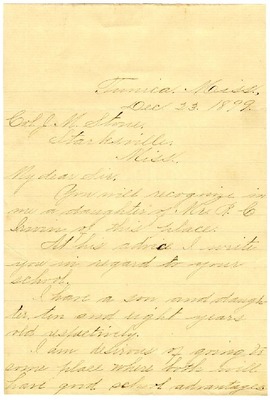 Tunica, Miss.
Dec 23. 1899.
Col. J. M. Stone,
Starksville,
Miss.
My dear Sir.
You will recognize in
me a daughter of Mr. R. C
Irwin of this place.
At his advice I write
you in regard to your
school.
I have a son and daugh-
ter, ten and eight years
old respectively.
I am desirous of going, to
some place where both will
have good school advantages